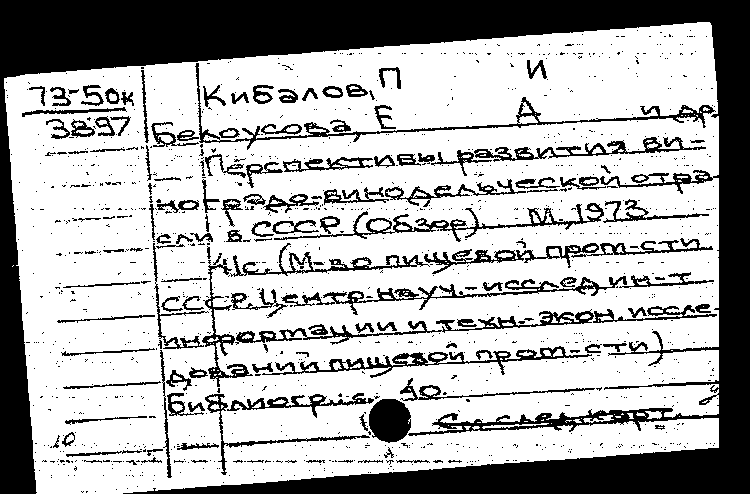 73-50к Кибалов, П И
3897 Белоусова, Е А и др.
Перспективы развития ви-
ноградо-винодельческой отра
сли в СССР. (Обзор). М., 1973.
41с. (М-во пищевой пром-сти
СССР. Центр. науч.-исслед. ин-т
информации и техн.-экон. иссле
дований пищевой пром-сти)
Библиогр.: с. 40.
См. след. карт.
10